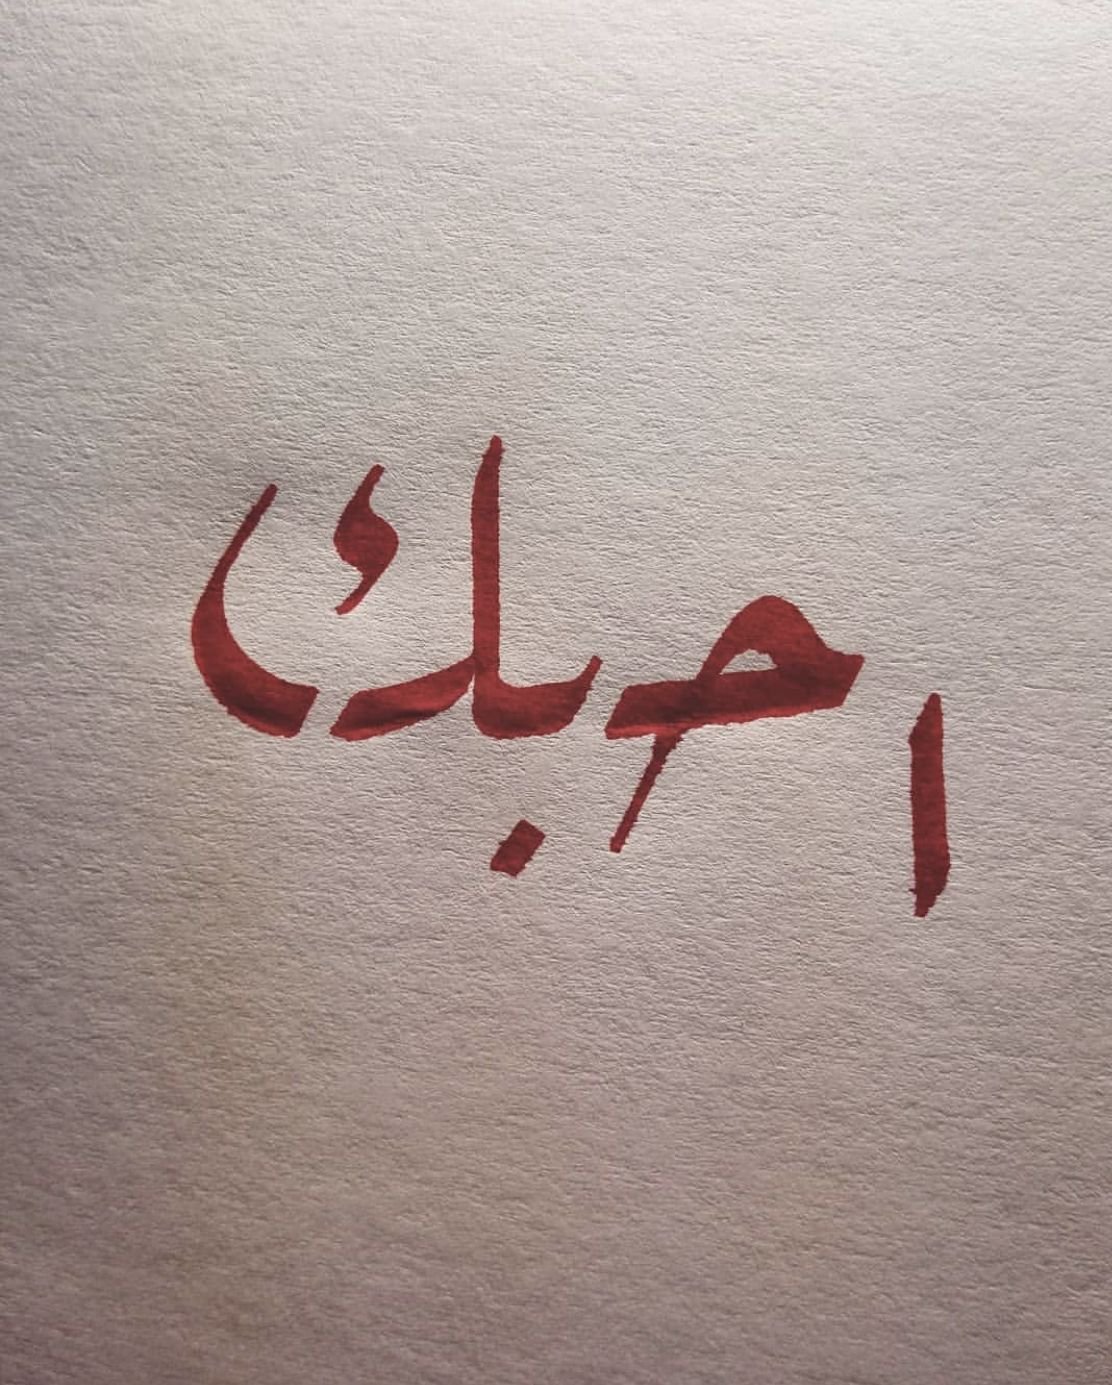 احبك